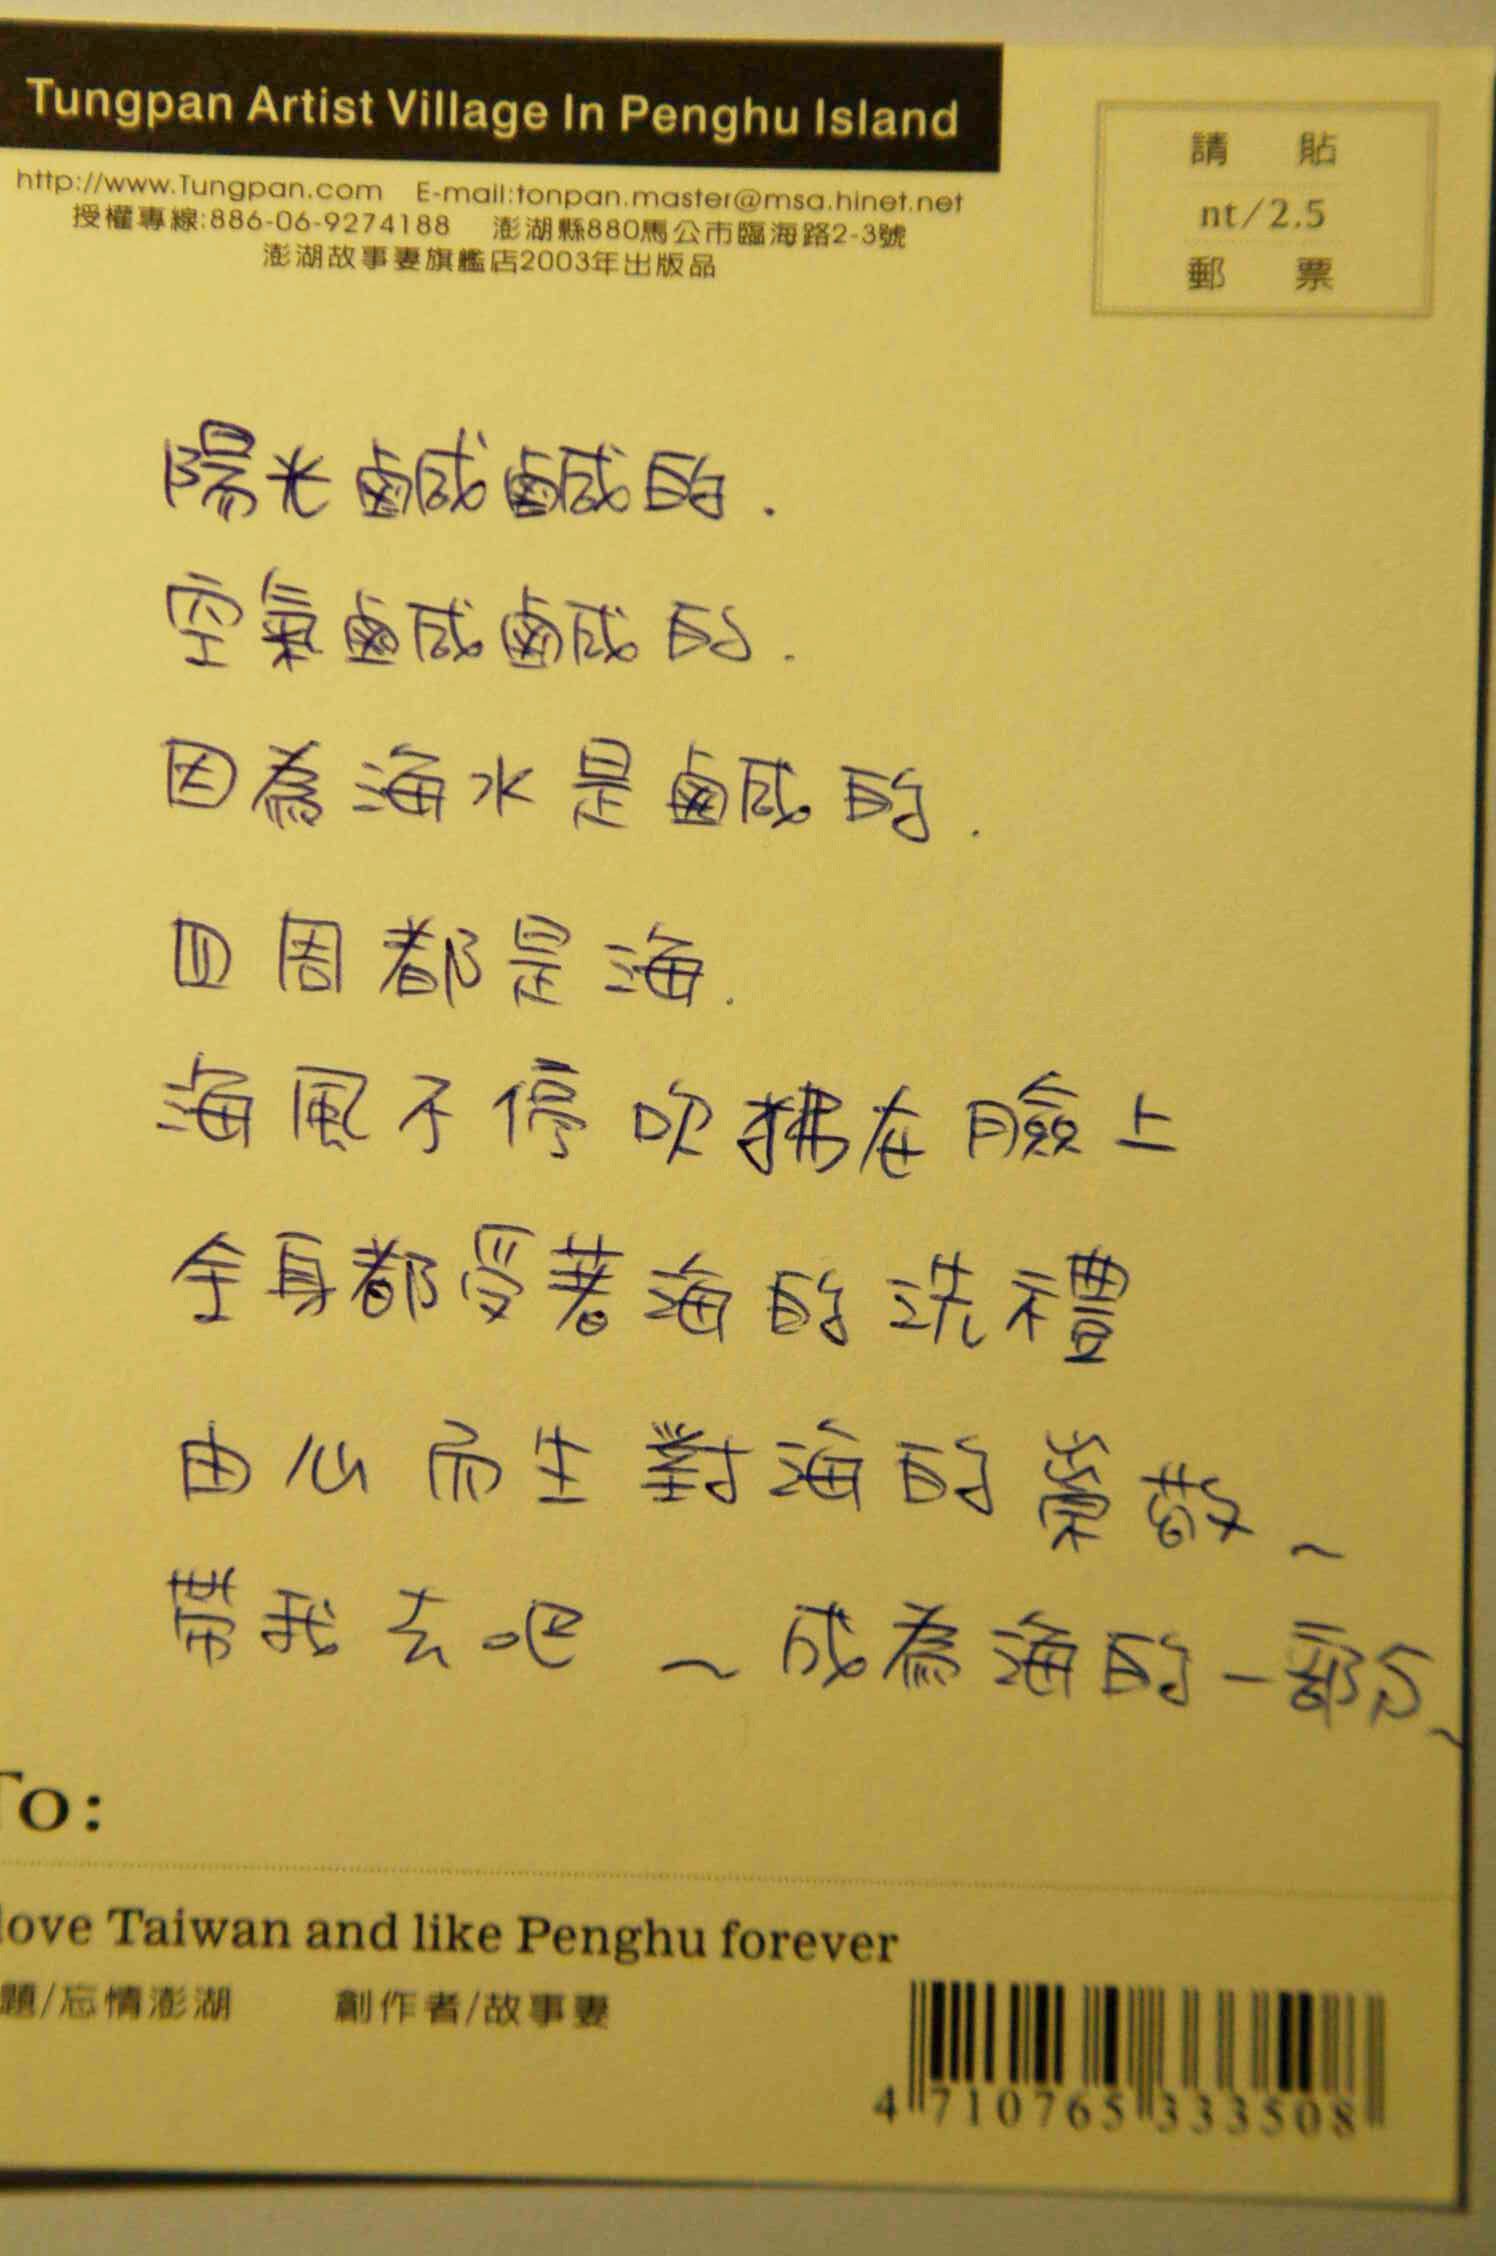 Tungpan Artist Village In Penghu Island
http://www.Tungpan.com E-mail:tonpan.master@msa.hinet.net
授權專線:886-06-9274188 澎湖縣880馬公市臨海路2-3號
澎湖故事妻旗艦店2003年出版品
請 貼
nt/2.5
郵 票
陽光鹹鹹的.
空氣鹹鹹的.
因為海水是鹹的.
四周都是海.
海風不停吹拂在臉上
全身都受著海的洗禮
由心而生對海的崇敬~
帶我去吧~成為海的一部分~
To:
love Taiwan and like Penghu forever
題/忘情澎湖 創作者/故事妻
4 710765 333508